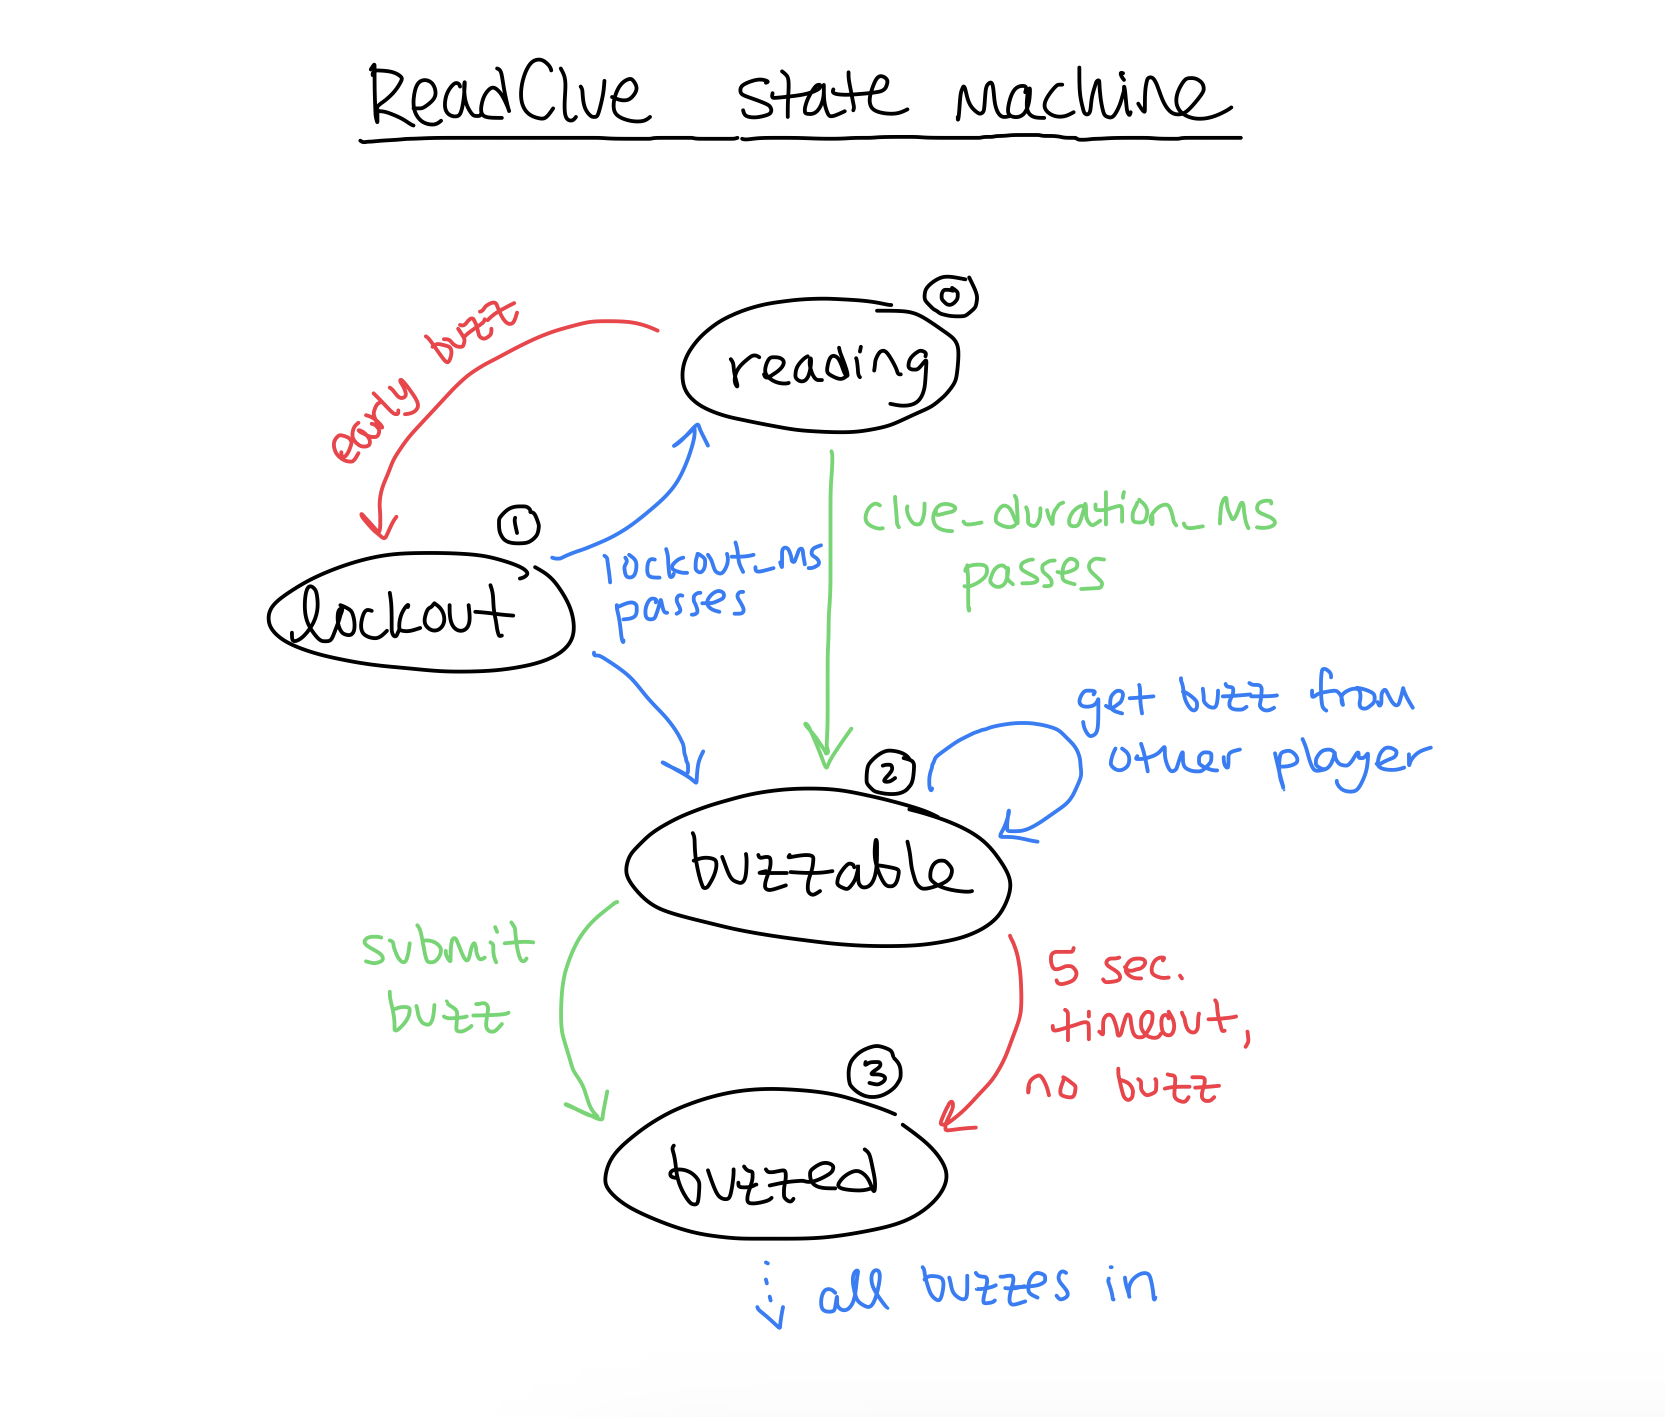 ReadClue state machine
0
reading
early buzz
clue_duration_ms
passes
1
lockout
lockout_ms
passes
get buzz from
other player
2
buzzable
submit
buzz
5 sec.
timeout,
no buzz
3
buzzed
all buzzes in